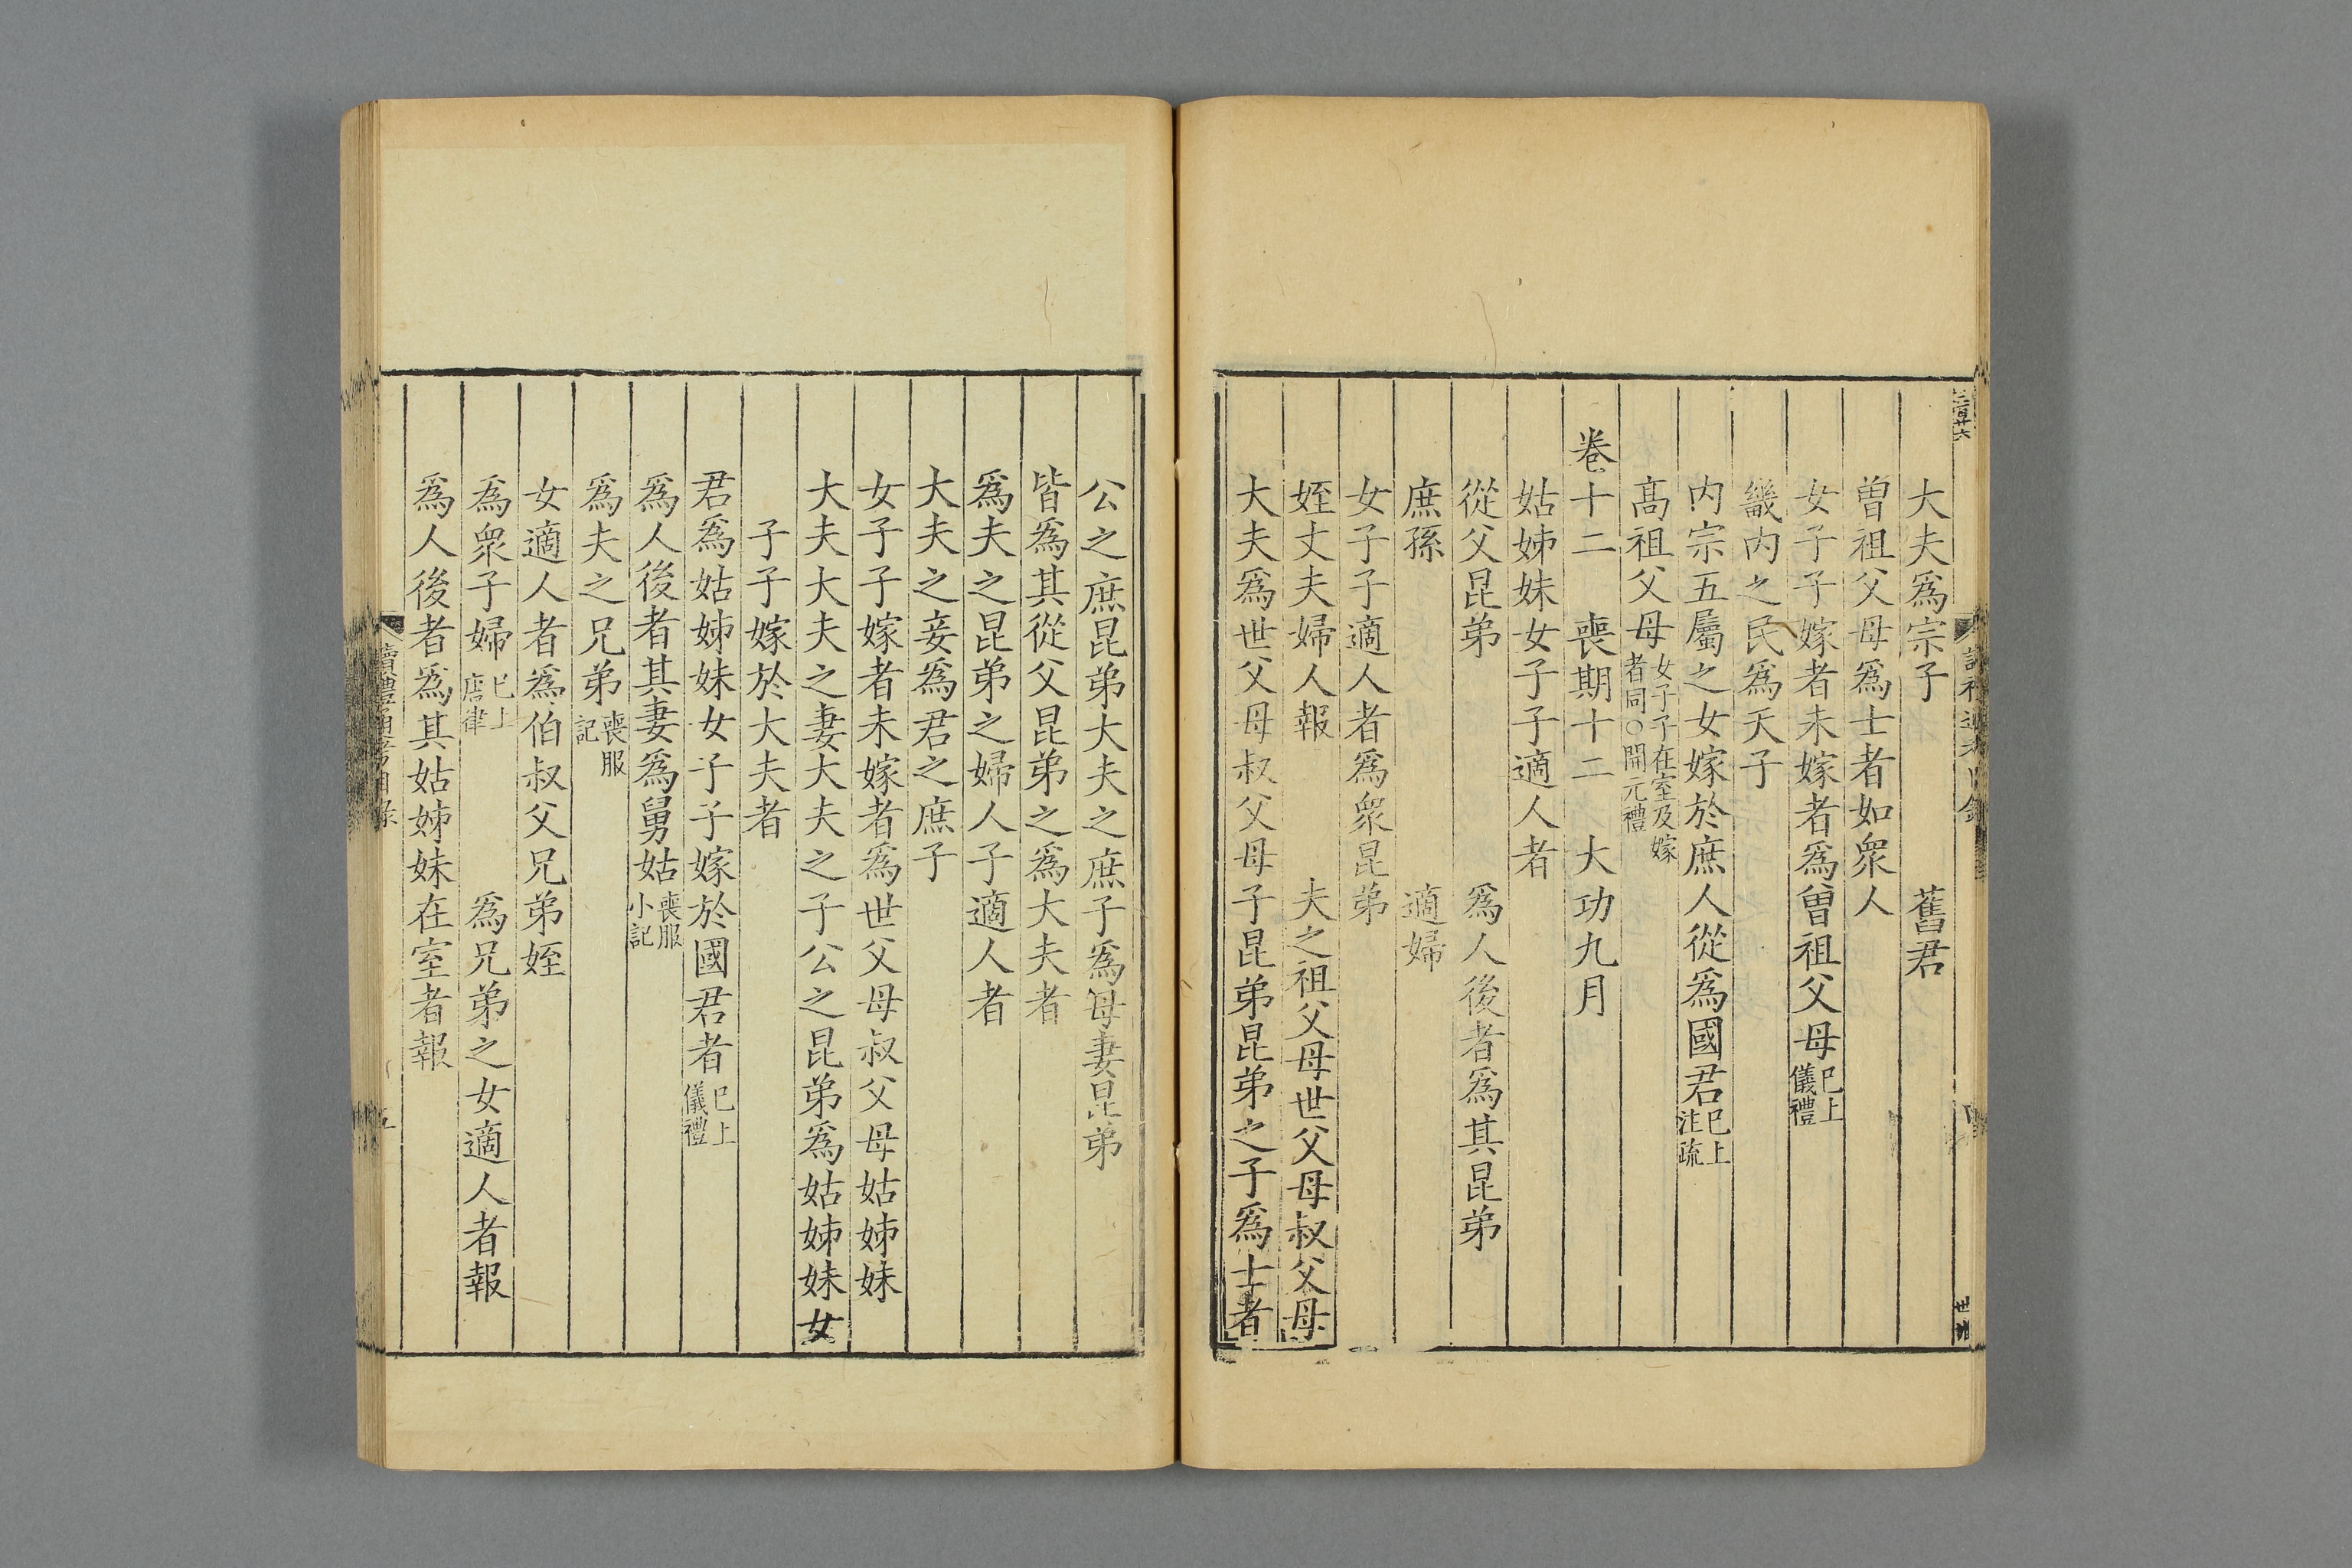 大夫爲宗子　舊君
曾祖父母爲士者如衆人
女子子嫁者未嫁者爲曾祖父母巳上儀禮
畿内之民爲天子
内宗五屬之女嫁於庶人從爲國君巳上注疏
髙祖父母女子子在室及嫁者同○開元禮
卷十二　喪期十二　大功九月
姑姊妹女子子適人者
從父昆弟　爲人後者爲其昆弟
庶孫　適婦
女子子適人者爲衆昆弟
姪丈夫婦人報　夫之祖父母世父母叔父母
大夫爲世父母叔父母子昆弟昆弟之子爲士者
公之庶昆弟大夫之庶子爲母妻昆弟
皆爲其從父昆弟之爲大夫者
爲夫之昆弟之婦人子適人者
大夫之妾爲君之庶子
女子子嫁者未嫁者爲世父母叔父母姑姊妹
大夫大夫之妻大夫之子公之昆弟爲姑姊妹女
子子嫁於大夫者
君爲姑姊妹女子子嫁於國君者巳上儀禮
爲人後者其妻爲舅姑喪服小記
爲夫之兄弟喪服記
女適人者爲伯叔父兄弟姪
爲衆子婦巳上唐律　爲兄弟之女適人者報
爲人後者爲其姑姊妹在室者報
讀禮通考目錄　五